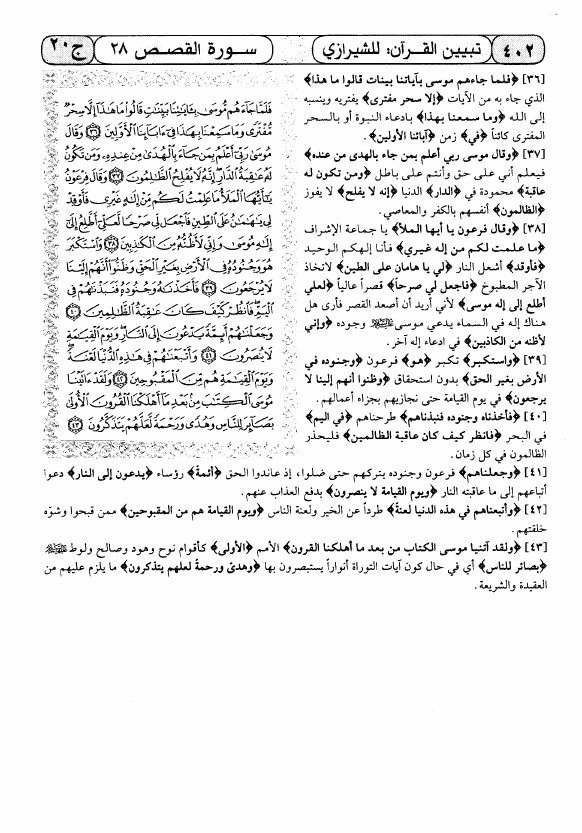 ٤٠٢ تبيين القرآن: للشيرازي سورة القصص ٢٨ ج٢٠
[٣٦] ﴿فلما جاءهم موسى بآياتنا بينات قالوا ما هذا﴾
الذي جاء به من الآيات ﴿إلا سحر مفترى﴾ يفتريه وينسبه
إلى الله ﴿وما سمعنا بهذا﴾ بادعاء النبوة أو بالسحر
المفترى كائناً ﴿في﴾ زمن ﴿آبائنا الأولين﴾.
[٣٧] ﴿وقال موسى ربي أعلم بمن جاء بالهدى من عنده﴾
فيعلم أني على حق وأنتم على باطل ﴿ومن تكون له
عاقبة﴾ محمودة في ﴿الدار﴾ الدنيا ﴿إنه لا يفلح﴾ لا يفوز
﴿الظالمون﴾ أنفسهم بالكفر والمعاصي.
[٣٨] ﴿وقال فرعون يا أيها الملأ﴾ يا جماعة الإشراف
﴿ما علمت لكم من إله غيري﴾ فأنا إلهكم الوحيد
﴿فأوقد﴾ أشعل النار ﴿لي يا هامان على الطين﴾ لاتخاذ
الآجر المطبوخ ﴿فاجعل لي صرحاً﴾ قصراً عالياً ﴿لعلي
أطلع إلى إله موسى﴾ لأني أريد أن أصعد القصر فأرى هل
هناك إله في السماء يدعي موسى وجوده ﴿وإني
لأظنه من الكاذبين﴾ في ادعاء إله آخر.
[٣٩] ﴿واستكبر﴾ تكبر ﴿هو﴾ فرعون ﴿وجنوده في
الأرض بغير الحق﴾ بدون استحقاق ﴿وظنوا أنهم إلينا لا
يرجعون﴾ في يوم القيامة حتى نجازيهم بجزاء أعمالهم.
[٤٠] ﴿فأخذناه وجنوده فنبذناهم﴾ طرحناهم ﴿في اليم﴾
في البحر ﴿فانظر كيف كان عاقبة الظالمين﴾ فليحذر
الظالمون في كل زمان.
فَلَمَّا جَاءَهُم مُّوسَىٰ بِـَٔايَٰتِنَا بَيِّنَٰتٍ قَالُوا۟ مَا هَٰذَآ إِلَّا سِحْرٌ
مُّفْتَرًى وَمَا سَمِعْنَا بِهَٰذَا فِىٓ ءَابَآئِنَا ٱلْأَوَّلِينَ ٣٦ وَقَالَ
مُوسَىٰ رَبِّىٓ أَعْلَمُ بِمَن جَآءَ بِٱلْهُدَىٰ مِنْ عِندِهِۦ وَمَن تَكُونُ
لَهُۥ عَٰقِبَةُ ٱلدَّارِ إِنَّهُۥ لَا يُفْلِحُ ٱلظَّٰلِمُونَ ٣٧ وَقَالَ فِرْعَوْنُ
يَٰٓأَيُّهَا ٱلْمَلَأُ مَا عَلِمْتُ لَكُم مِّنْ إِلَٰهٍ غَيْرِى فَأَوْقِدْ
لِى يَٰهَٰمَٰنُ عَلَى ٱلطِّينِ فَٱجْعَل لِّى صَرْحًا لَّعَلِّىٓ أَطَّلِعُ إِلَىٰٓ
إِلَٰهِ مُوسَىٰ وَإِنِّى لَأَظُنُّهُۥ مِنَ ٱلْكَٰذِبِينَ ٣٨ وَٱسْتَكْبَرَ
هُوَ وَجُنُودُهُۥ فِى ٱلْأَرْضِ بِغَيْرِ ٱلْحَقِّ وَظَنُّوٓا۟ أَنَّهُمْ إِلَيْنَا
لَا يُرْجَعُونَ ٣٩ فَأَخَذْنَٰهُ وَجُنُودَهُۥ فَنَبَذْنَٰهُمْ فِى
ٱلْيَمِّ فَٱنظُرْ كَيْفَ كَانَ عَٰقِبَةُ ٱلظَّٰلِمِينَ ٤٠
وَجَعَلْنَٰهُمْ أَئِمَّةً يَدْعُونَ إِلَى ٱلنَّارِ وَيَوْمَ ٱلْقِيَٰمَةِ
لَا يُنصَرُونَ ٤١ وَأَتْبَعْنَٰهُمْ فِى هَٰذِهِ ٱلدُّنْيَا لَعْنَةً
وَيَوْمَ ٱلْقِيَٰمَةِ هُم مِّنَ ٱلْمَقْبُوحِينَ ٤٢ وَلَقَدْ ءَاتَيْنَا
مُوسَى ٱلْكِتَٰبَ مِنۢ بَعْدِ مَآ أَهْلَكْنَا ٱلْقُرُونَ ٱلْأُولَىٰ
بَصَآئِرَ لِلنَّاسِ وَهُدًى وَرَحْمَةً لَّعَلَّهُمْ يَتَذَكَّرُونَ ٤٣
[٤١] ﴿وجعلناهم﴾ فرعون وجنوده بتركهم حتى ضلوا، إذ عاندوا الحق ﴿أئمة﴾ رؤساء ﴿يدعون إلى النار﴾ دعوا
أتباعهم إلى ما عاقبته النار ﴿ويوم القيامة لا ينصرون﴾ بدفع العذاب عنهم.
[٤٢] ﴿وأتبعناهم في هذه الدنيا لعنة﴾ طرداً عن الخير ولعنة الناس ﴿ويوم القيامة هم من المقبوحين﴾ ممن قبحوا وشوّه
خلقتهم.
[٤٣] ﴿ولقد آتينا موسى الكتاب من بعد ما أهلكنا القرون﴾ الأمم ﴿الأولى﴾ كأقوام نوح وهود وصالح ولوط
﴿بصائر للناس﴾ أي في حال كون آيات التوراة أنواراً يستبصرون بها ﴿وهدىً ورحمة لعلهم يتذكرون﴾ ما يلزم عليهم من
العقيدة والشريعة.